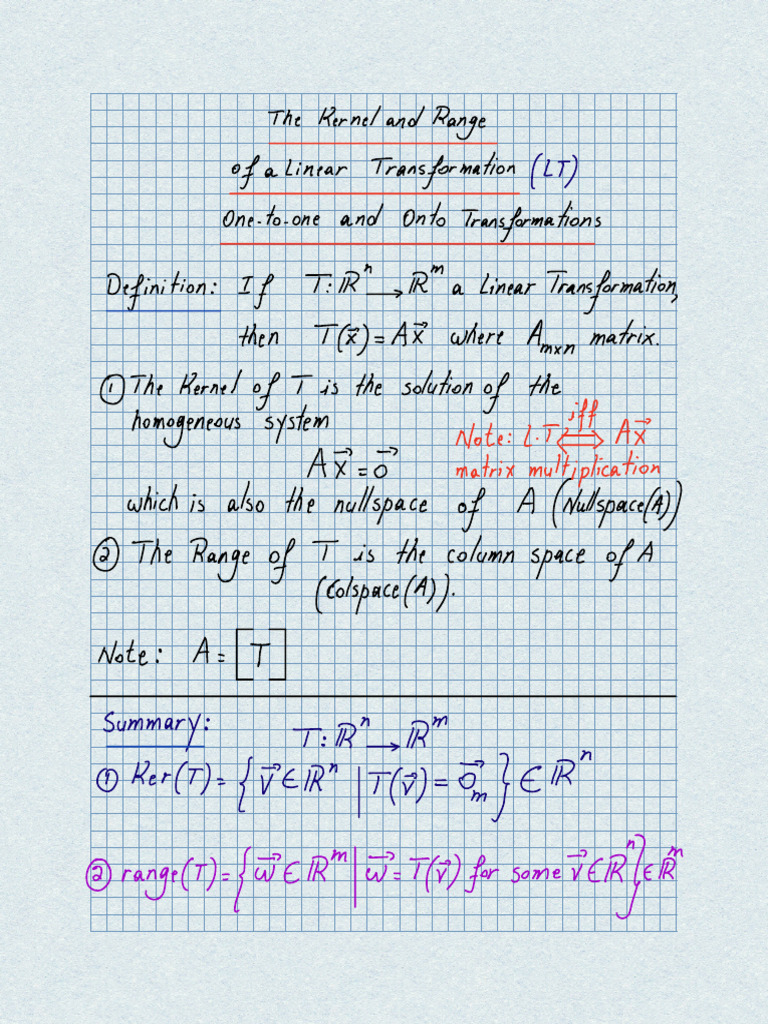 The Kernel and Range
of a Linear Transformation (LT)
One-to-one and Onto Transformations
Definition: If T: ℝⁿ → ℝᵐ a Linear Transformation,
then T(x⃗) = Ax⃗ where Aₘₓₙ matrix.
① The Kernel of T is the solution of the
homogeneous system
Note: L.T. ⟺ iff Ax⃗
matrix multiplication
Ax⃗ = 0⃗
which is also the nullspace of A (Nullspace(A))
② The Range of T is the column space of A
(Colspace(A)).
Note: A = [T]
Summary: T: ℝⁿ → ℝᵐ
① Ker(T) = {v⃗ ∈ ℝⁿ | T(v⃗) = 0⃗ₘ} ∈ ℝⁿ
② range(T) = {w⃗ ∈ ℝᵐ | w⃗ = T(v⃗) for some v⃗ ∈ ℝⁿ} ∈ ℝᵐ